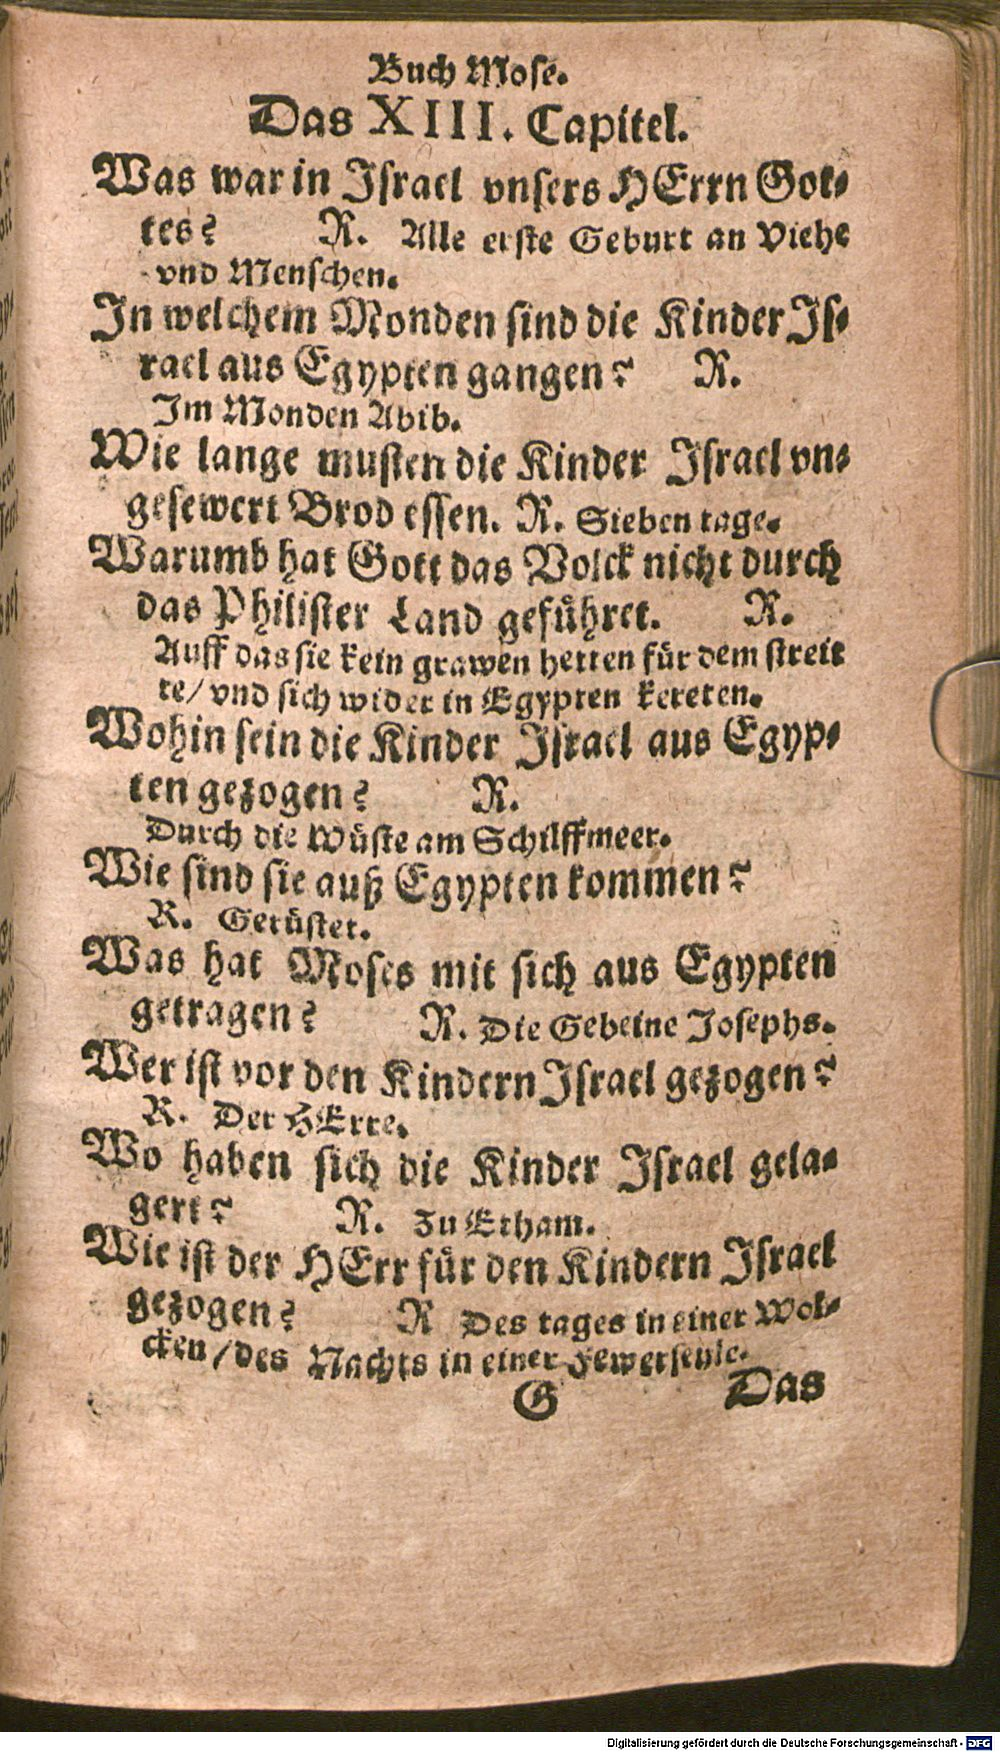 Buch Mose.
Das XIII. Capitel.
Was war in Israel vnsers HErrn Got-
tes? R. Alle erste Geburt an Viehe
vnd Menschen.
In welchem Monden sind die Kinder Is-
rael aus Egypten gangen? R.
Im Monden Abib.
Wie lange musten die Kinder Israel vn-
gesewert Brod essen. R. Sieben tage.
Warumb hat Gott das Volck nicht durch
das Philister Land geführet. R.
Auff das sie kein grawen hetten für dem streit
te/ vnd sich wider in Egypten kereten.
Wohin sein die Kinder Israel aus Egyp-
ten gezogen? R.
Durch die Wüste am Schilffmeer.
Wie sind sie auß Egypten kommen?
R. Gerüstet.
Was hat Moses mit sich aus Egypten
getragen? R. Die Gebeine Josephs.
Wer ist vor den Kindern Israel gezogen?
R. Der HErre.
Wo haben sich die Kinder Israel gela-
gert? R. Zu Etham.
Wie ist der HErr für den Kindern Israel
gezogen? R Des tages in einer Wol-
cken/ des Nachts in einer Fewerseule.
G Das
Digitalisierung gefördert durch die Deutsche Forschungsgemeinschaft - DFG